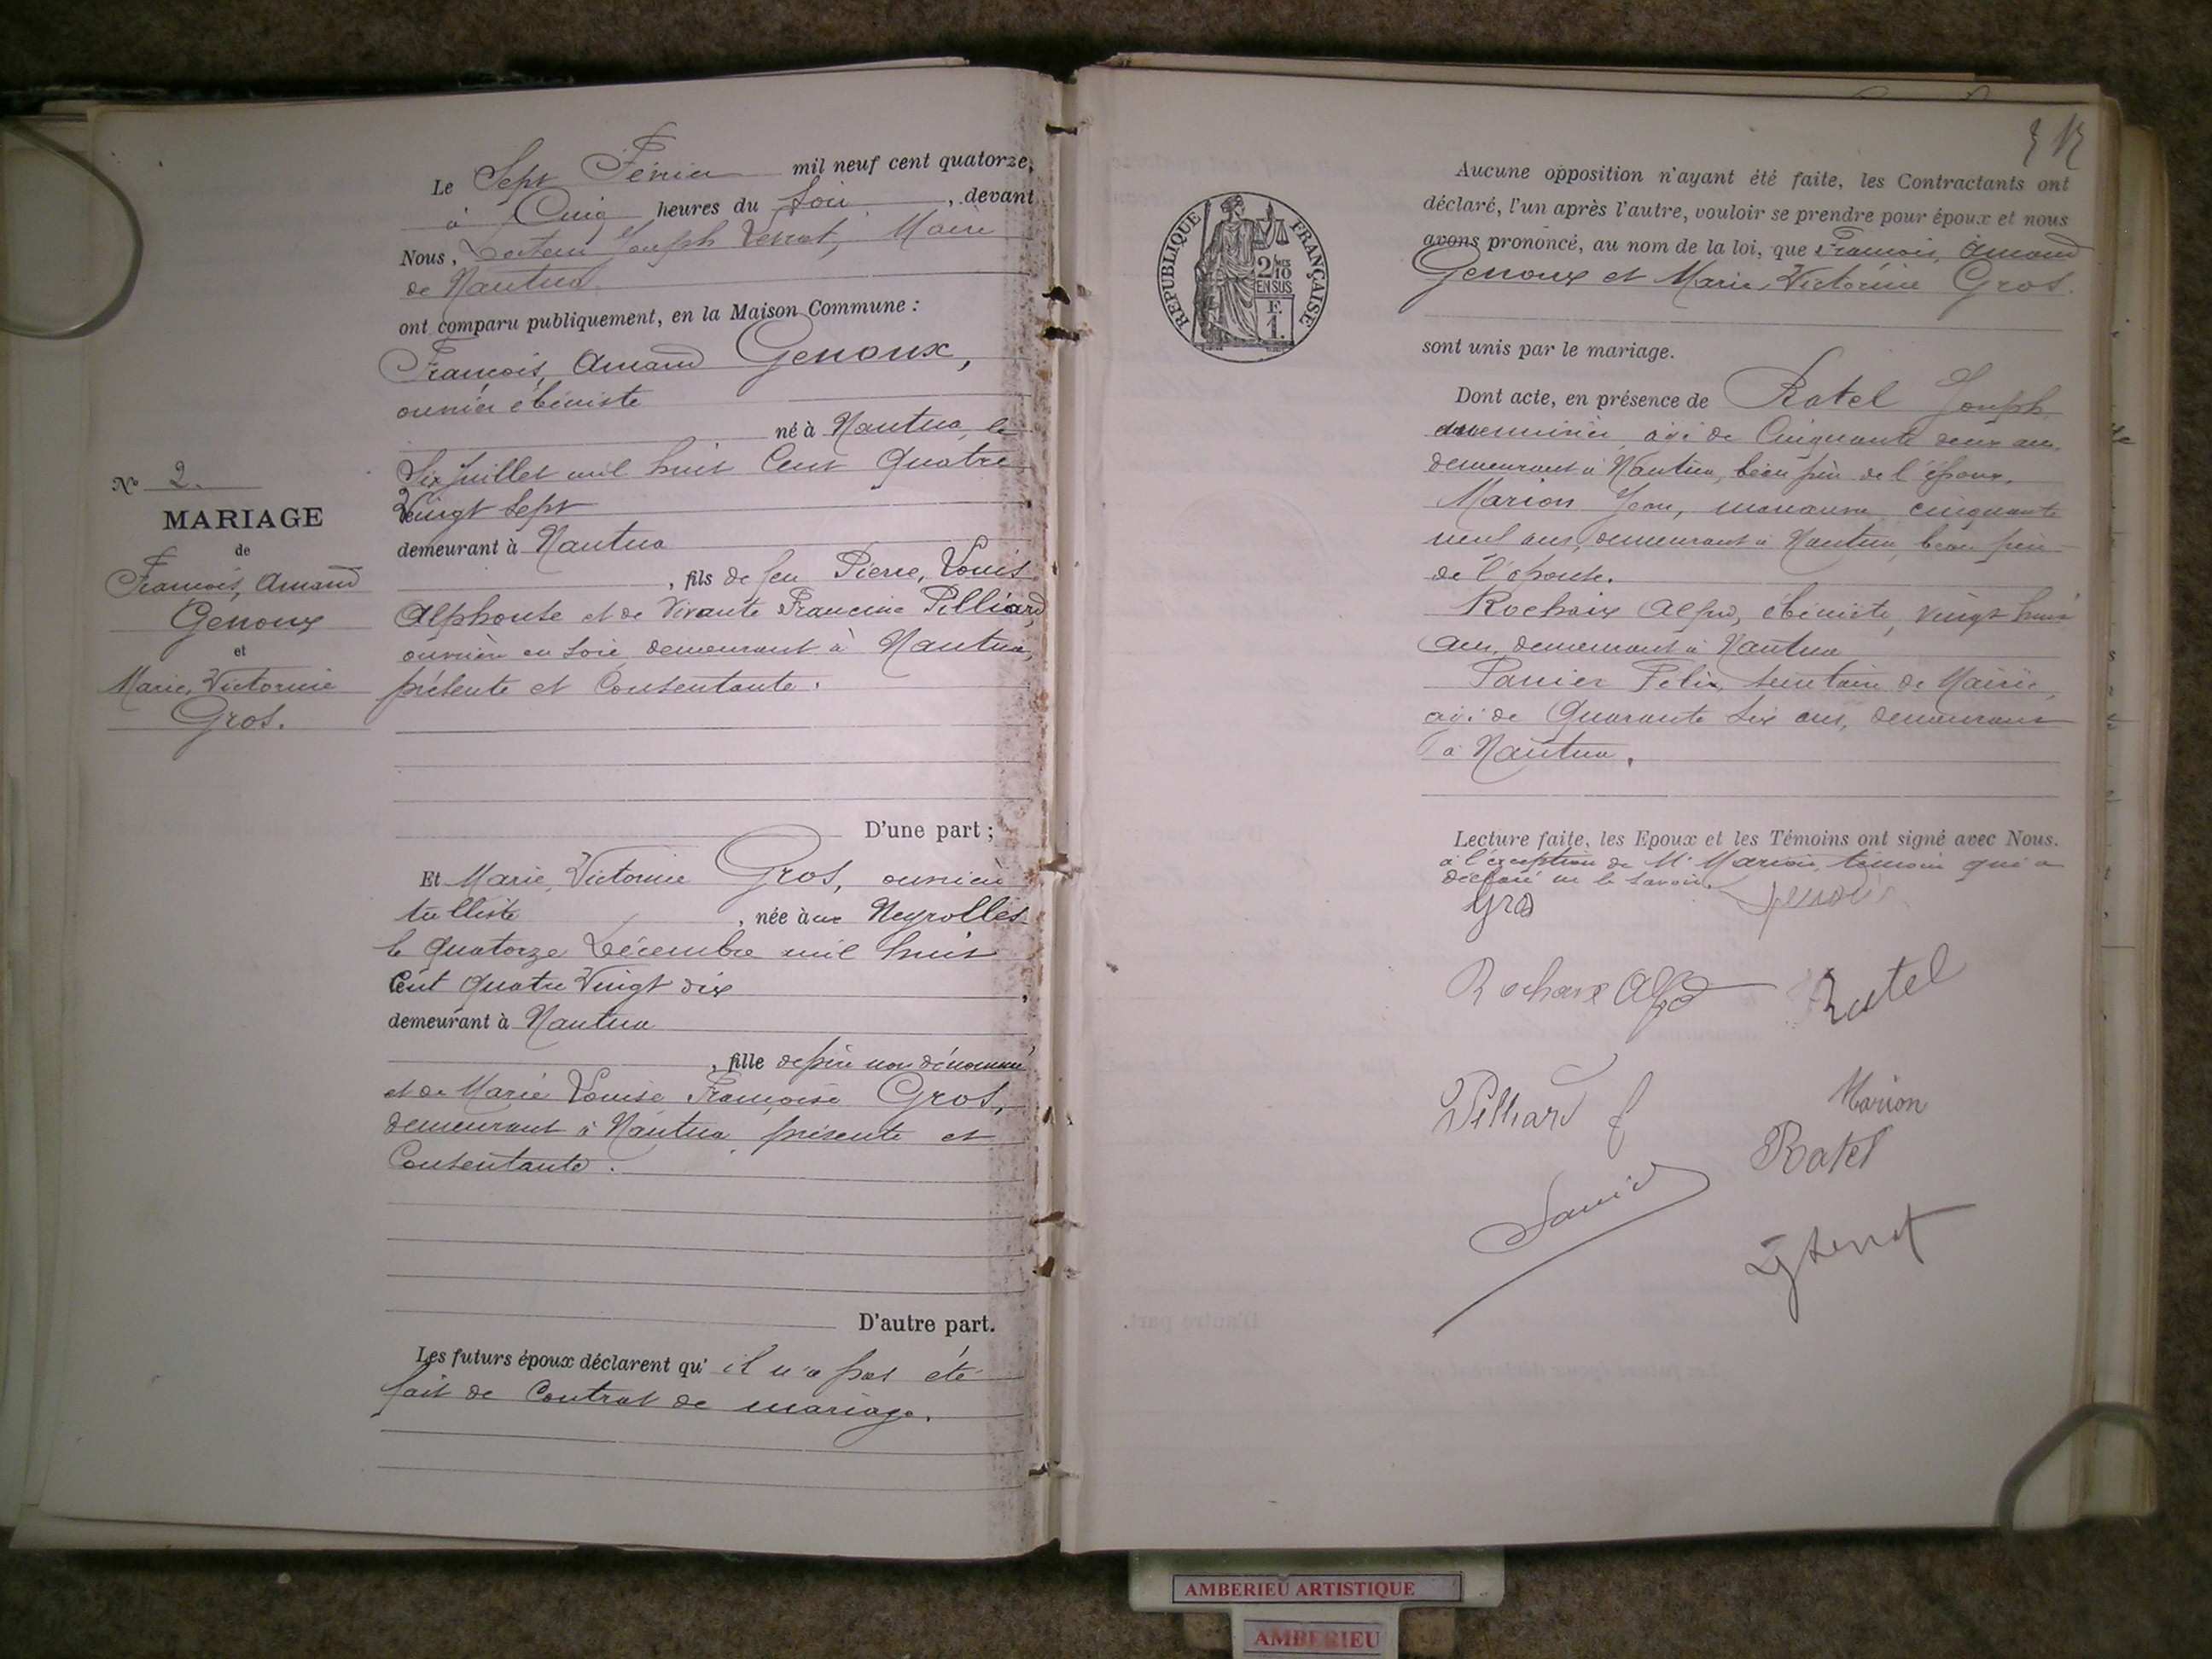 Le Sept Février mil neuf cent quatorze,
à Cinq heures du Soir, devant
Nous, Docteur Joseph Verrat, Maire
de Nantua
ont comparu publiquement, en la Maison Commune :
François, Amand Genoux,
ouvrier ébéniste
né à Nantua, le
Six Juillet mil huit Cent Quatre
Vingt Sept
demeurant à Nantua
, fils de feu Pierre, Louis
Alphonse et de Vivante Francine Pilliard,
ouvrière en soie demeurant à Nantua,
présente et Consentante.
D'une part ;
N° 2.
MARIAGE
de
François, Amand
Genoux
et
Marie, Victorine
Gros.
Et Marie, Victorine Gros, ouvrière
tulliste, née aux Neyrolles
le Quatorze Décembre mil huit
Cent Quatre Vingt dix,
demeurant à Nantua
, fille de père non dénommé
et de Marie Louise Françoise Gros,
demeurant à Nantua, présente et
Consentante.
D'autre part.
Les futurs époux déclarent qu'il n'a pas été
fait de Contrat de mariage.
REPUBLIQUE FRANÇAISE
2/10 MES
EN SUS
F.
1.
Aucune opposition n'ayant été faite, les Contractants ont
déclaré, l'un après l'autre, vouloir se prendre pour époux et nous
avons prononcé, au nom de la loi, que François, Amand
Genoux et Marie, Victorine Gros.
sont unis par le mariage.
Dont acte, en présence de Ratel Joseph,
menuisier, agé de Cinquante deux ans,
demeurant à Nantua, beau père de l'époux.
Marion Jean, manœuvre, cinquante
neuf ans, demeurant à Nantua, beau père
de l'épouse.
Rochaix Alfred, ébéniste, vingt huit
ans, demeurant à Nantua
Panier Félix, secrétaire de Mairie,
agé de Quarante Six ans, demeurant
à Nantua.
Lecture faite, les Epoux et les Témoins ont signé avec Nous.
à l'exception de Mr Marion, témoin qui a
déclaré ne le savoir.
Gros Genoux
Rochaix Alfd Ratel
Pilliard f Marion
Ratel
Panier
AMBERIEU ARTISTIQUE
AMBERIEU